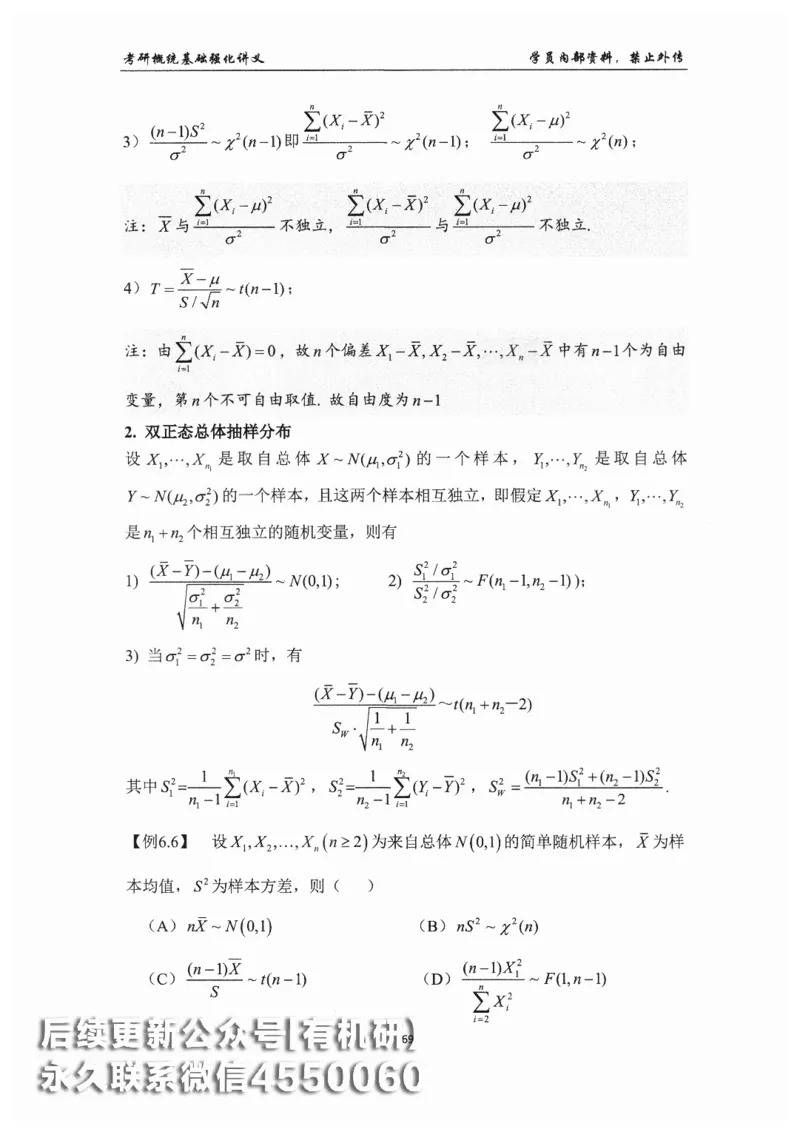 考研概统基础强化讲义 学员内部资料，禁止外传
3）$\frac{(n-1)S^2}{\sigma^2} \sim \chi^2(n-1)$即$\frac{\sum_{i=1}^{n}(X_i-\overline{X})^2}{\sigma^2} \sim \chi^2(n-1)$； $\frac{\sum_{i=1}^{n}(X_i-\mu)^2}{\sigma^2} \sim \chi^2(n)$；
注：$\overline{X}$与$\frac{\sum_{i=1}^{n}(X_i-\mu)^2}{\sigma^2}$不独立，$\frac{\sum_{i=1}^{n}(X_i-\overline{X})^2}{\sigma^2}$与$\frac{\sum_{i=1}^{n}(X_i-\mu)^2}{\sigma^2}$不独立.
4）$T=\frac{\overline{X}-\mu}{S/\sqrt{n}} \sim t(n-1)$；
注：由$\sum_{i=1}^{n}(X_i-\overline{X})=0$，故$n$个偏差$X_1-\overline{X},X_2-\overline{X},\cdots,X_n-\overline{X}$中有$n-1$个为自由
变量，第$n$个不可自由取值. 故自由度为$n-1$
2. 双正态总体抽样分布
设 $X_1,\cdots,X_{n_1}$ 是取自总体 $X\sim N(\mu_1,\sigma_1^2)$ 的一个样本， $Y_1,\cdots,Y_{n_2}$ 是取自总体
$Y\sim N(\mu_2,\sigma_2^2)$的一个样本，且这两个样本相互独立，即假定$X_1,\cdots,X_{n_1}$，$Y_1,\cdots,Y_{n_2}$
是$n_1+n_2$个相互独立的随机变量，则有
1) $\frac{(\overline{X}-\overline{Y})-(\mu_1-\mu_2)}{\sqrt{\frac{\sigma_1^2}{n_1}+\frac{\sigma_2^2}{n_2}}} \sim N(0,1)$; 2) $\frac{S_1^2/\sigma_1^2}{S_2^2/\sigma_2^2} \sim F(n_1-1,n_2-1))$;
3) 当$\sigma_1^2=\sigma_2^2=\sigma^2$时，有
$\frac{(\overline{X}-\overline{Y})-(\mu_1-\mu_2)}{S_W\cdot\sqrt{\frac{1}{n_1}+\frac{1}{n_2}}} \sim t(n_1+n_2-2)$
其中$S_1^2=\frac{1}{n_1-1}\sum_{i=1}^{n_1}(X_i-\overline{X})^2$，$S_2^2=\frac{1}{n_2-1}\sum_{i=1}^{n_2}(Y_i-\overline{Y})^2$，$S_W^2=\frac{(n_1-1)S_1^2+(n_2-1)S_2^2}{n_1+n_2-2}$.
【例6.6】 设$X_1,X_2,\ldots,X_n(n\geq2)$为来自总体$N(0,1)$的简单随机样本，$\overline{X}$为样
本均值，$S^2$为样本方差，则（ ）
（A）$n\overline{X}\sim N(0,1)$ （B）$nS^2\sim\chi^2(n)$
（C）$\frac{(n-1)\overline{X}}{S}\sim t(n-1)$ （D）$\frac{(n-1)X_1^2}{\sum_{i=2}^{n}X_i^2}\sim F(1,n-1)$
69
后续更新公众号[有机研]
永久联系微信4550060